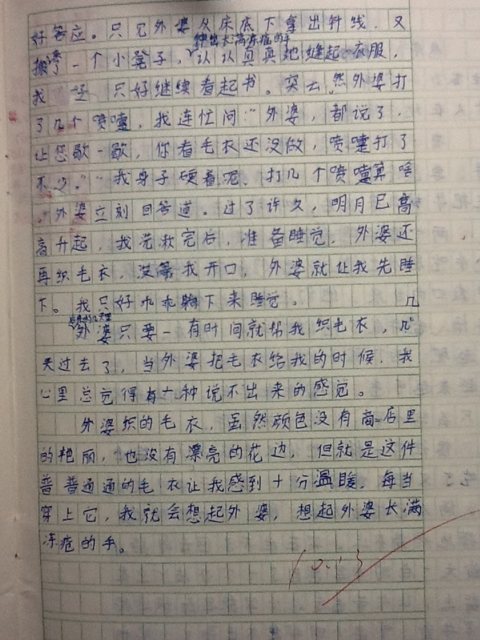 好答应。只见外婆从床底下拿出针线,又
伸出长满冻疮的手
搬了一个小凳子,认认真真地缝起衣服,
我 只好继续看起书。突然外婆打
了几个喷嚏,我连忙问:“外婆,都说了,
让您歇一歇,你看毛衣还没做,喷嚏打了
不少。”“我身子硬着呢,打几个喷嚏算啥
。”外婆立刻回答道。过了许久,明月已高
高升起,我洗漱完后,准备睡觉,外婆还
再织毛衣,没等我开口,外婆就让我先睡
下。我只好乖乖躺下来睡觉。
外婆只要一有时间就帮我织毛衣,几
天过去了,当外婆把毛衣给我的时候,我
心里总觉得有一种说不出来的感觉。
外婆织的毛衣,虽然颜色没有商店里
的艳丽,也没有漂亮的花边,但就是这件
普普通通的毛衣让我感到十分温暖。每当
穿上它,我就会想起外婆,想起外婆长满
冻疮的手。
10.13